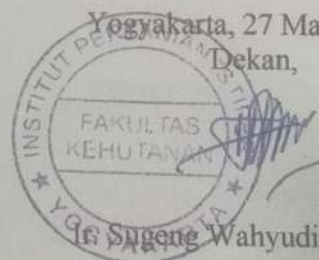 Yogyakarta, 27 Ma
Dekan,
INSTITUT PERTANIAN STI
FAKULTAS
KEHUTANAN
YOGYAKARTA
Ir. Sugeng Wahyudi